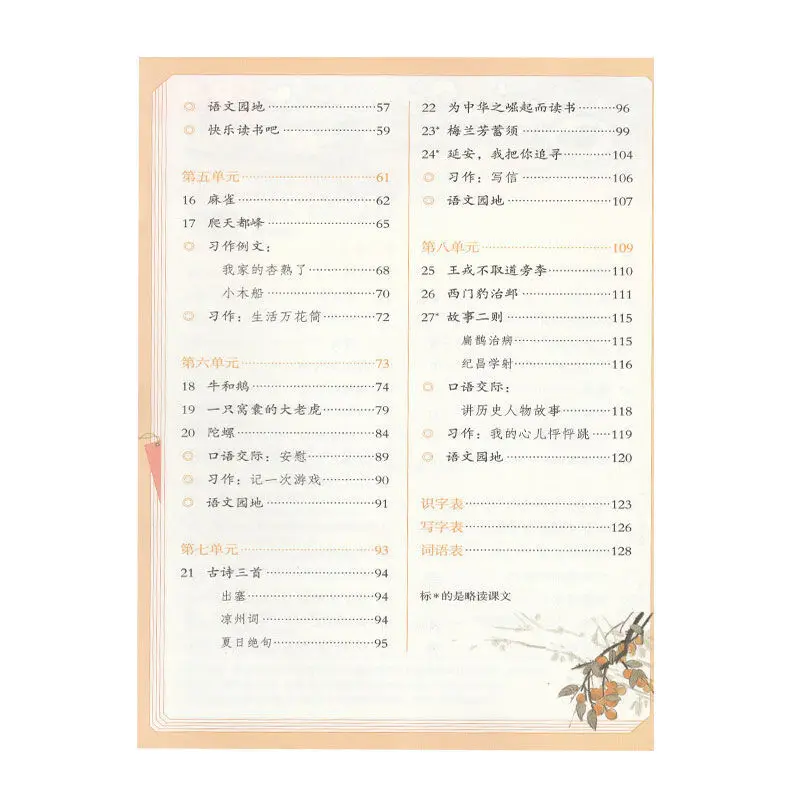 ◎ 语文园地……57
◎ 快乐读书吧……59
第五单元……61
16 麻雀……62
17 爬天都峰……65
◎ 习作例文：
我家的杏熟了……68
小木船……70
◎ 习作：生活万花筒……72
第六单元……73
18 牛和鹅……74
19 一只窝囊的大老虎……79
20 陀螺……84
◎ 口语交际：安慰……89
◎ 习作：记一次游戏……90
◎ 语文园地……91
第七单元……93
21 古诗三首……94
出塞……94
凉州词……94
夏日绝句……95
22 为中华之崛起而读书……96
23* 梅兰芳蓄须……99
24* 延安，我把你追寻……104
◎ 习作：写信……106
◎ 语文园地……107
第八单元……109
25 王戎不取道旁李……110
26 西门豹治邺……111
27* 故事二则……115
扁鹊治病……115
纪昌学射……116
◎ 口语交际：
讲历史人物故事……118
◎ 习作：我的心儿怦怦跳……119
◎ 语文园地……120
识字表……123
写字表……126
词语表……128
标*的是略读课文